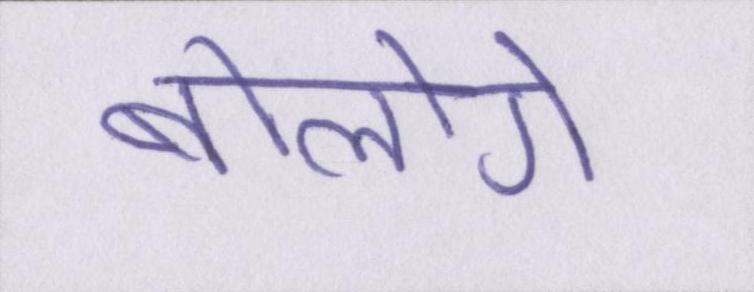 बोलोगे